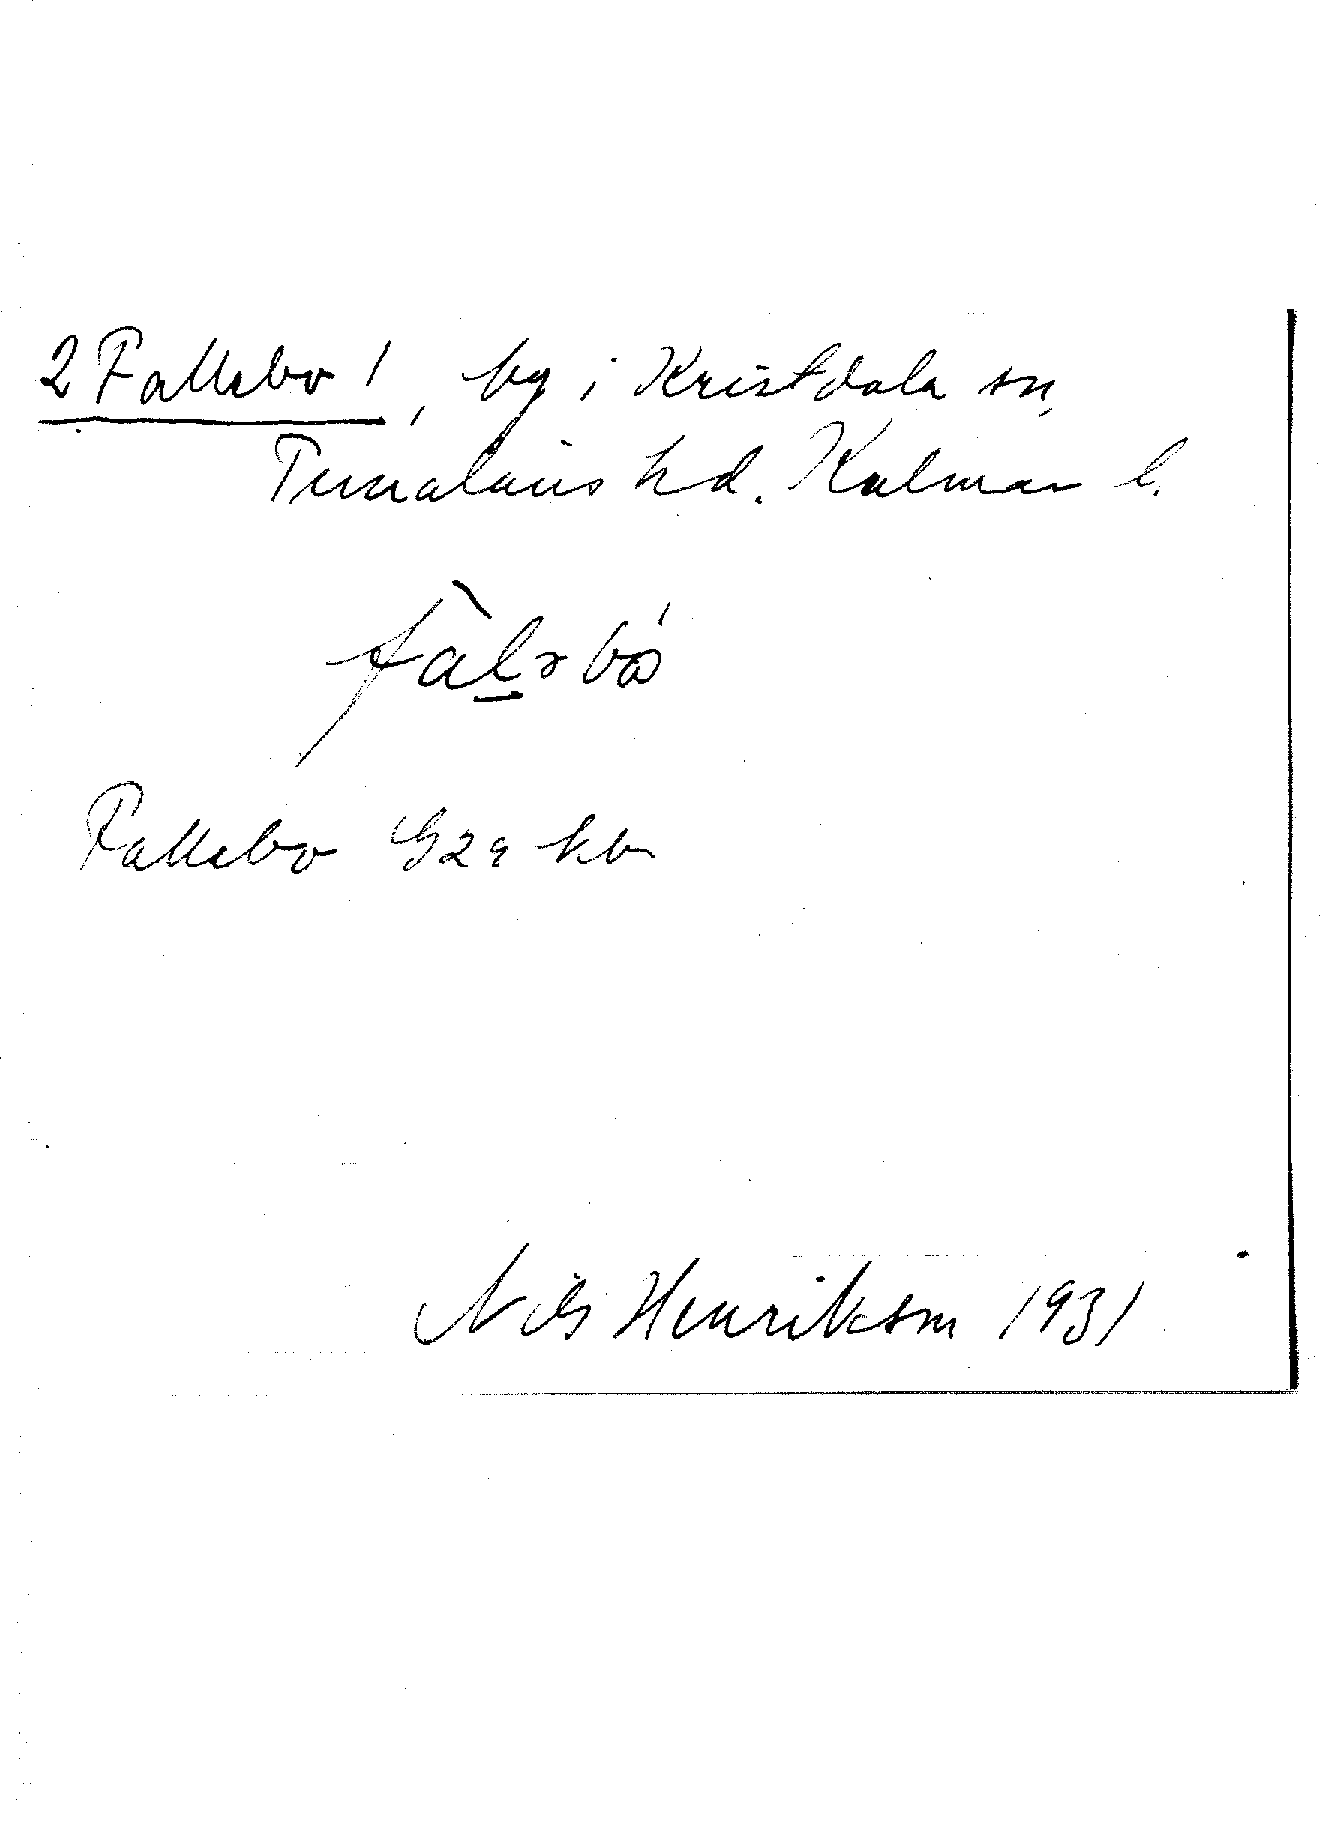 2 Fallebo 1, by i Kristdala sn,
Tunaläns hd. Kalmar l.
Fallebo G2a kbr
Nils Henrikson 1931